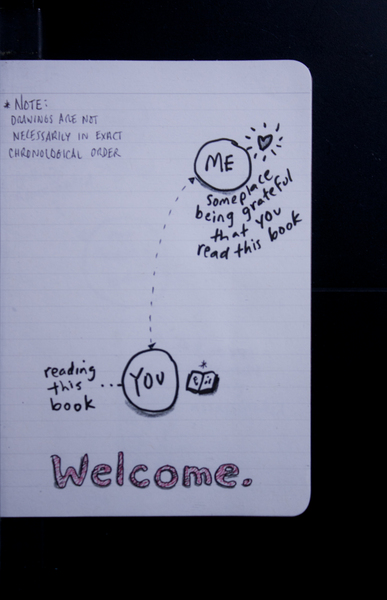 * NOTE:
DRAWINGS ARE NOT
NECESSARILY IN EXACT
CHRONOLOGICAL ORDER
ME
Someplace
being grateful
that you
read this book
reading
this
book
...
YOU
*
Welcome.